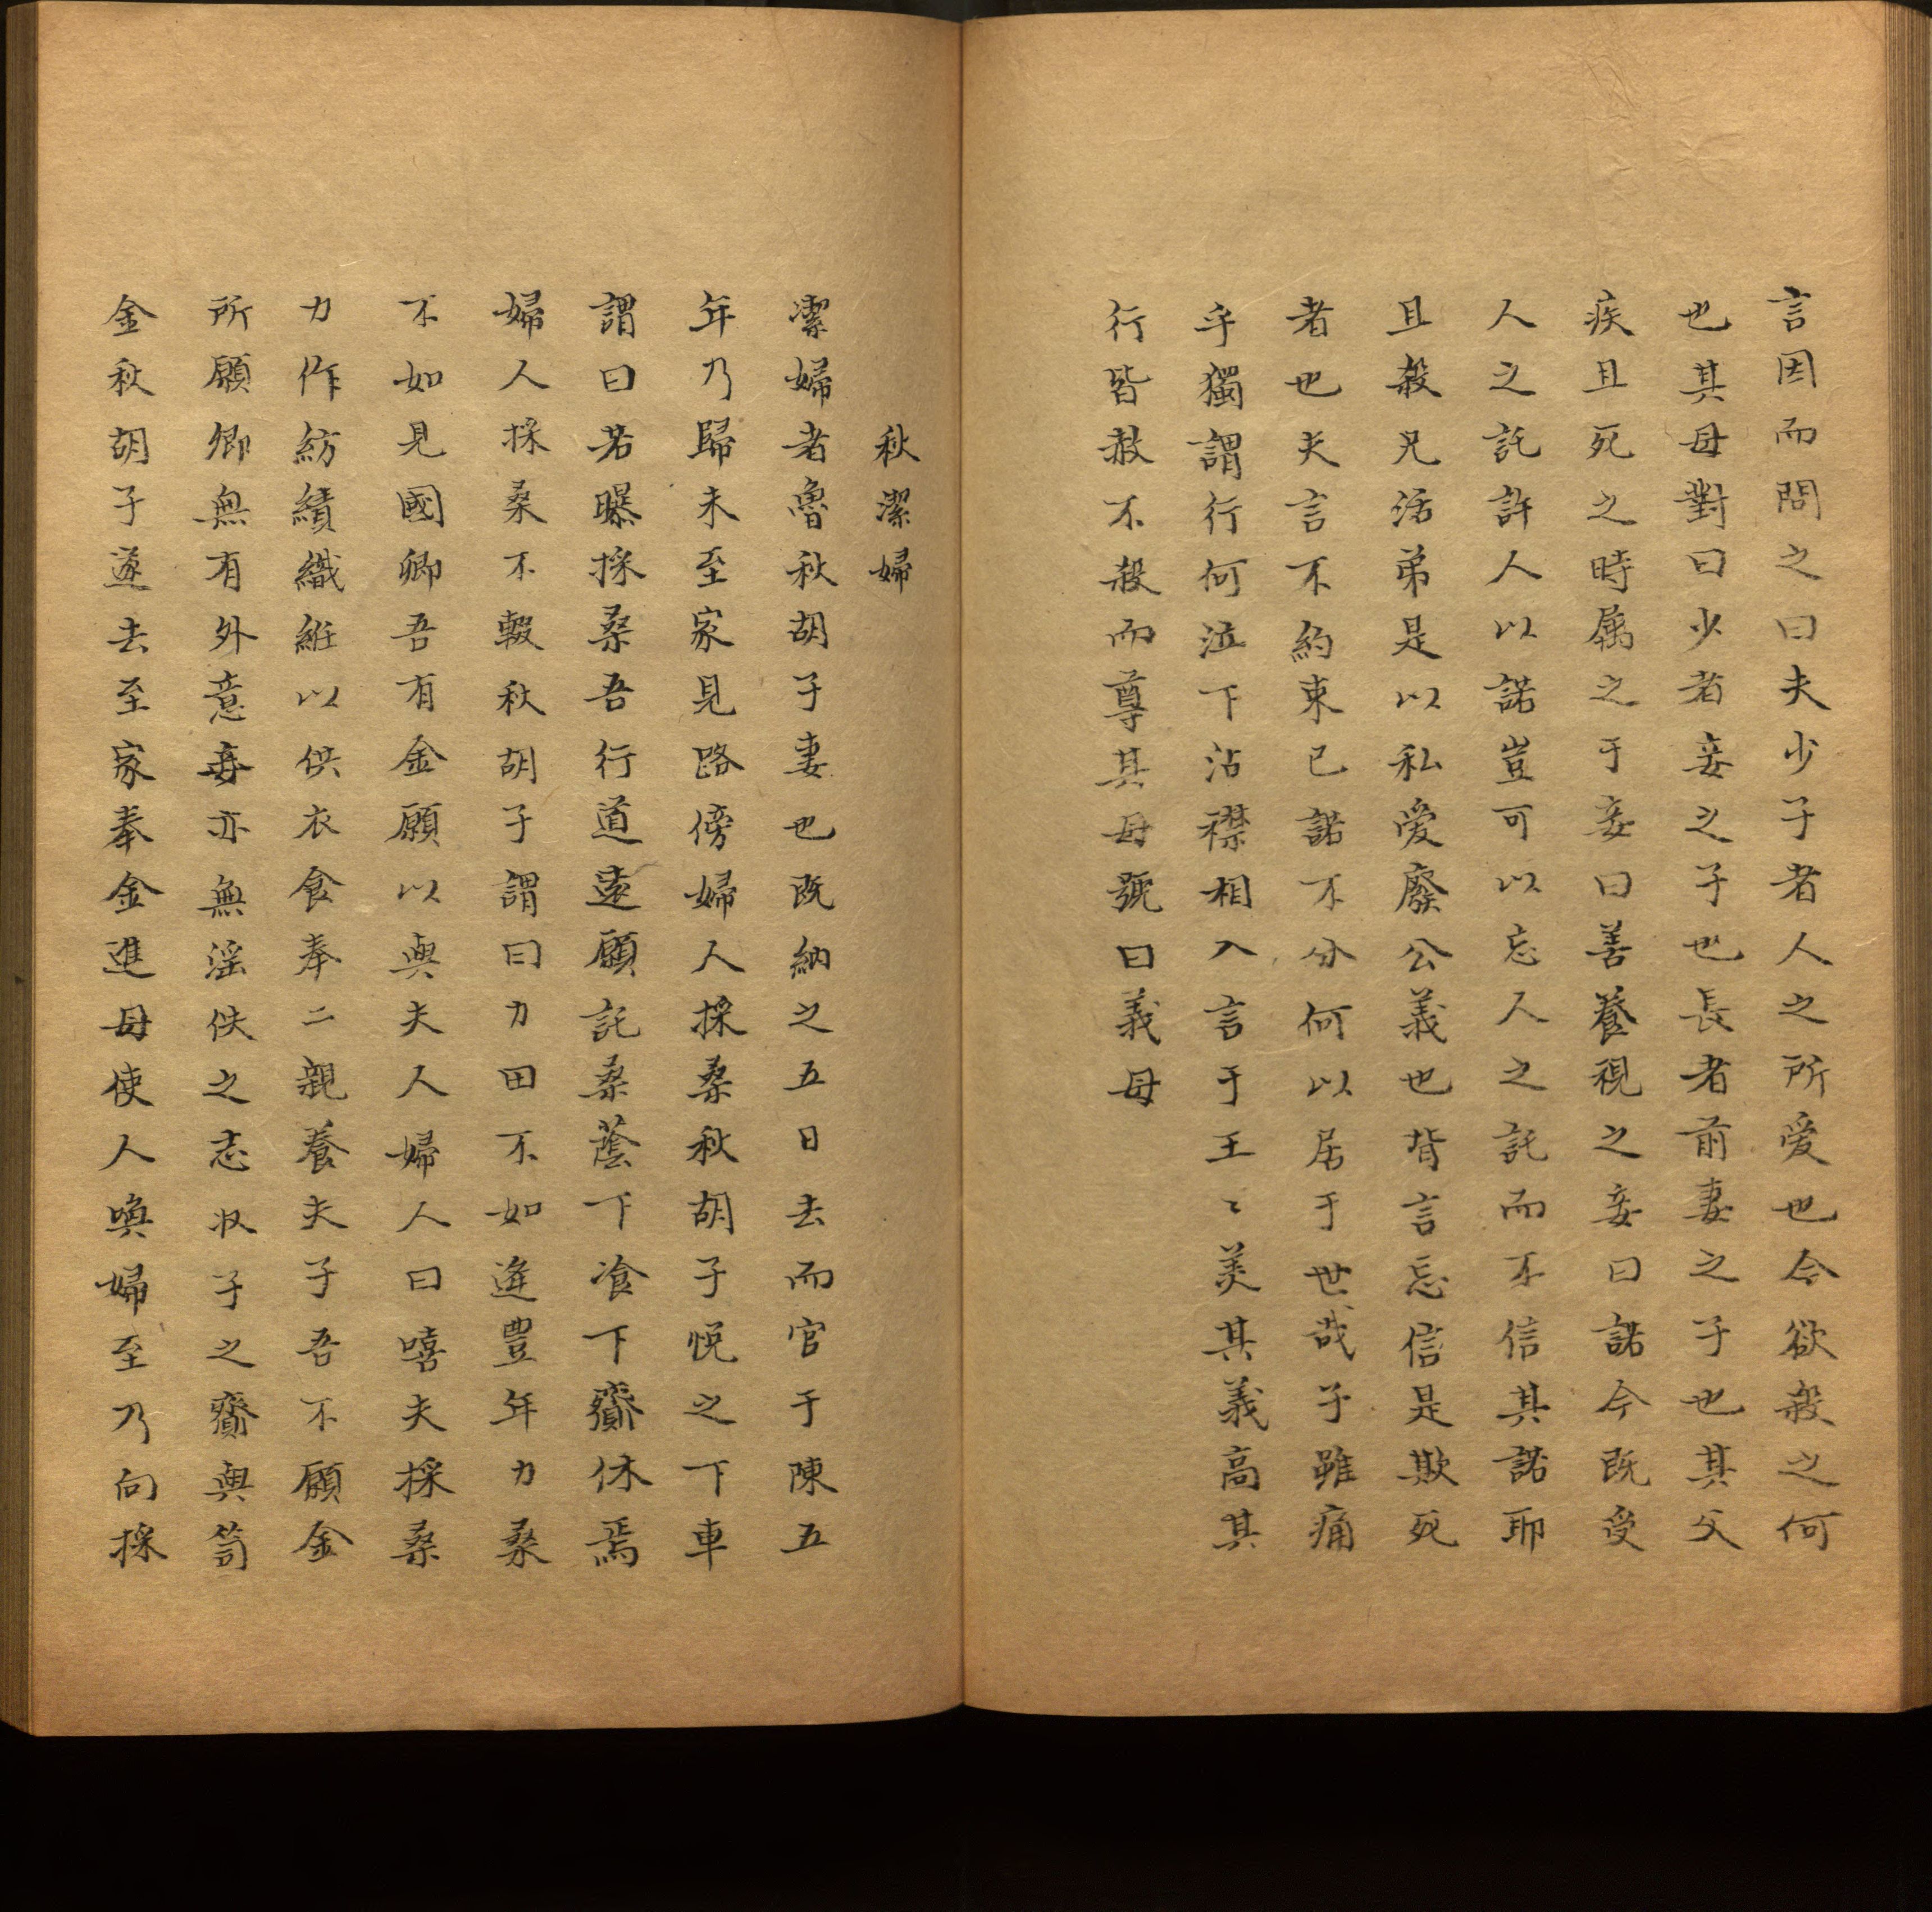 言因而問之曰夫少子者人之所愛也今欲殺之何
也其母對曰少者妾之子也長者前妻之子也其父
疾且死之時属之于妾曰善養視之妾曰諾今既受
人之託許人以諾豈可以忘人之託而不信其諾耶
且殺兄活弟是以私愛廢公義也背言忘信是欺死
者也夫言不約束已諾不分何以居于世哉子雖痛
乎獨謂行何泣下沾襟相入言于王〻美其義高其
行皆赦不殺而尊其母號曰義母
秋潔婦
潔婦者魯秋胡子妻也既納之五日去而官于陳五
年乃歸未至家見路傍婦人採桑秋胡子悅之下車
謂曰若曝採桑吾行道遠願託桑蔭下飡下齎休焉
婦人採桑不輟秋胡子謂曰力田不如逢豊年力桑
不如見國卿吾有金願以與夫人婦人曰嘻夫採桑
力作紡績織絍以供衣食奉二親養夫子吾不願金
所願卿無有外意妾亦無淫佚之志收子之齎與笥
金秋胡子遂去至家奉金進母使人喚婦至乃向採